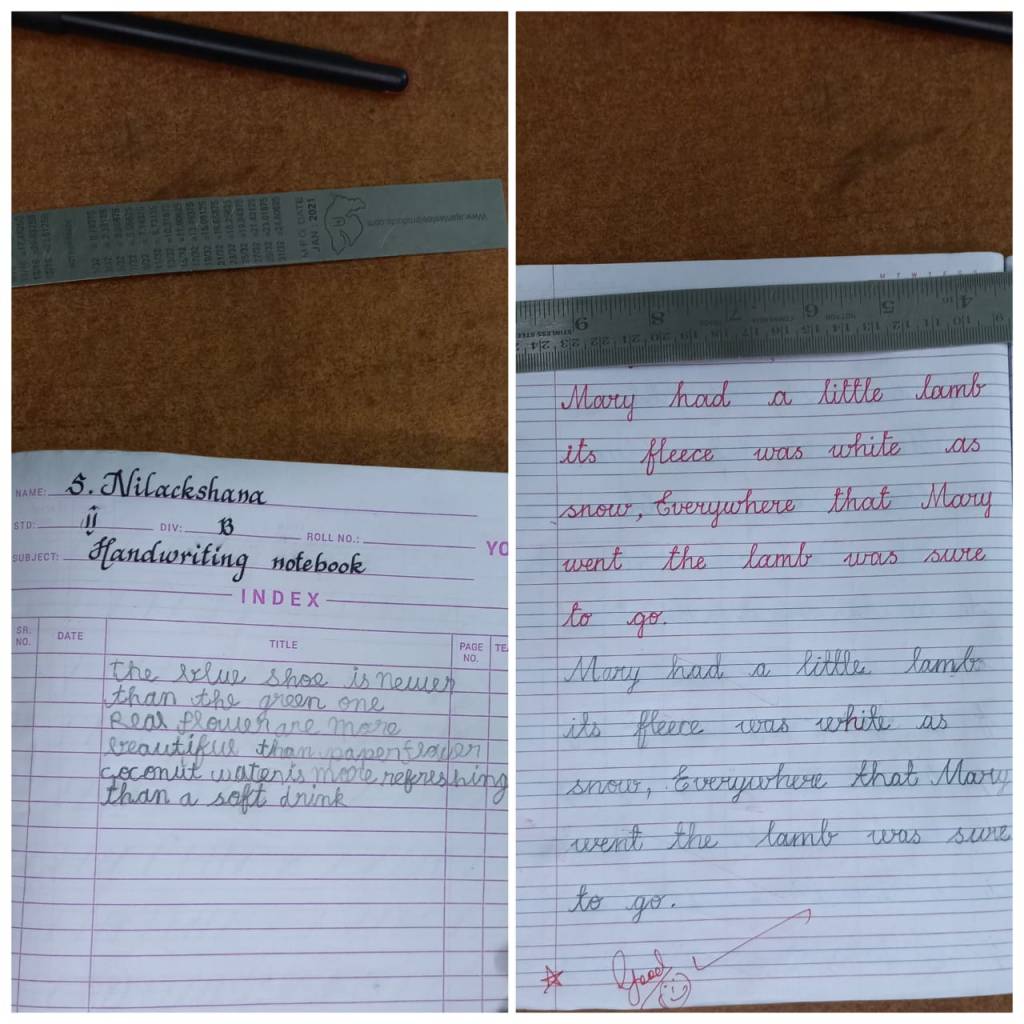 MFG DATE
JAN 2021
NAME: S. Nilackshana
STD: II DIV: B ROLL NO.:
SUBJECT: Handwriting notebook
INDEX
SR. NO. DATE TITLE PAGE NO.
the blue shoe is newer
than the green one
Real flower are more
beautiful than paper flower
coconut water is more refreshing
than a soft drink
M T W T F S S
9 8 7 6 5 4
STAINLESS STEEL
24 23 22 21 20 19 18 17 16 15 14 13 12 11 10 9
Mary had a little lamb
its fleece was white as
snow, Everywhere that Mary
went the lamb was sure
to go.
Mary had a little lamb
its fleece was white as
snow, Everywhere that Mary
went the lamb was sure
to go.
Good